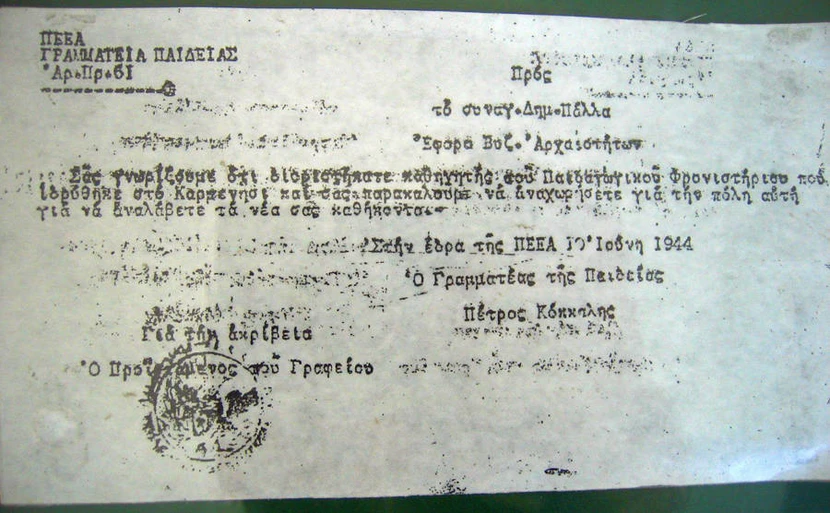 ΠΕΕΑ
ΓΡΑΜΜΑΤΕΙΑ ΠΑΙΔΕΙΑΣ
Ἀρ.Πρ.6Ι
Πρός
τό συναγ.Δημ.Πάλλα
Ἔφορα Βυζ.Ἀρχαιοτήτων
Σᾶς γνωρίζουμε ὅτι διοριστήκατε καθηγητής τοῦ Παιδαγωγικοῦ Φροντιστήριου πού
ἱδρύθηκε στό Καρπενήσι καί σας παρακαλοῦμε νά ἀναχωρήσετε γιά τήν πόλη αὐτή
γιά νά ἀναλάβετε τά νέα σας καθήκοντα.-
Στήν ἕδρα τῆς ΠΕΕΑ Ι0 Ἰούνη 1944
Ὁ Γραμματέας τῆς Παιδείας
Πέτρος Κόκκαλης
Γιά τήν ἀκρίβεια
Ὁ Προϊστάμενος τοῦ Γραφείου